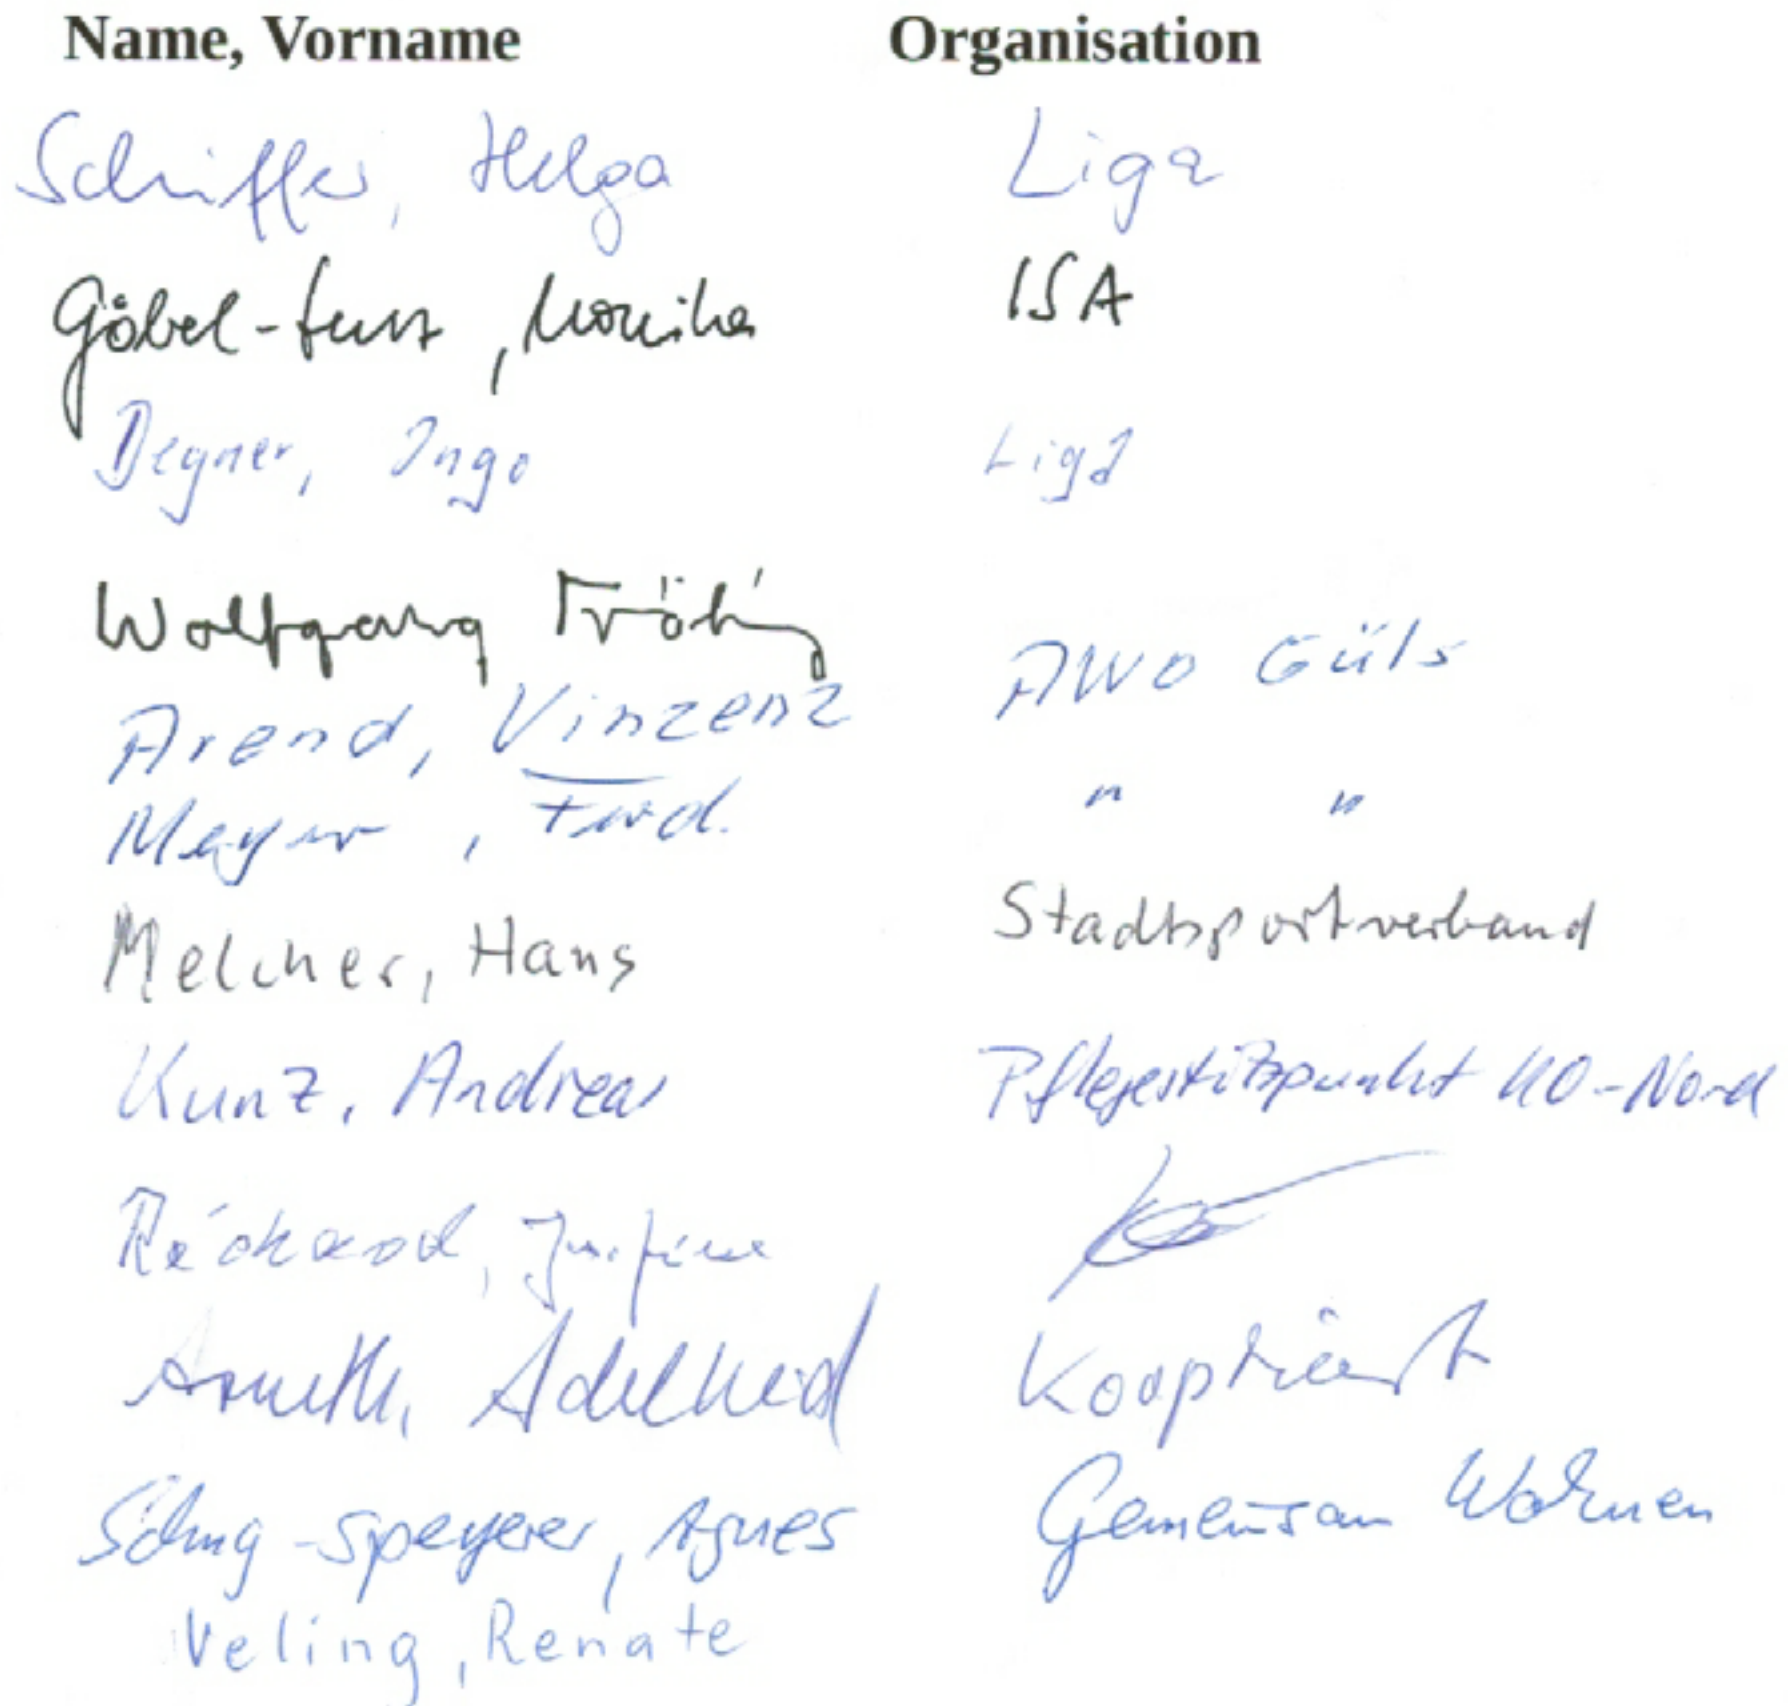 Name, Vorname Organisation
Schiffer, Helga Liga
Göbel- , Monika ISA
Degner, Ingo Liga
Wolfgang
Arend, Vinzenz AWO Güls
Meyer, Ferd. " "
Melcher, Hans Stadtsportverband
Kunz, Andreas Pflegestützpunkt KO-Nord
Arneth, Adelheid Kooptiert
Schug-Speyerer, Agnes Gemeinsam Wohnen
Veling, Renate